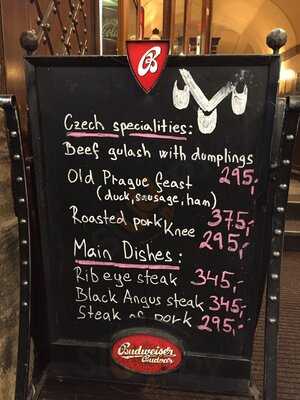 B
Czech specialities:
Beef gulash with dumplings
295,-
Old Prague feast
(duck, sausage, ham)
375,-
Roasted pork Knee
295,-
Main Dishes:
Rib eye steak 345,-
Black Angus steak 345,-
Steak of pork 295,-
Budweiser
Budvar